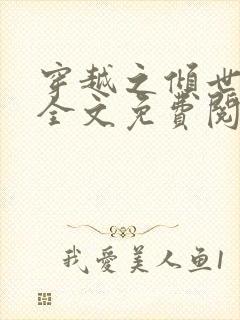 穿越之倾世
全文免費閱
我愛美人鱼1